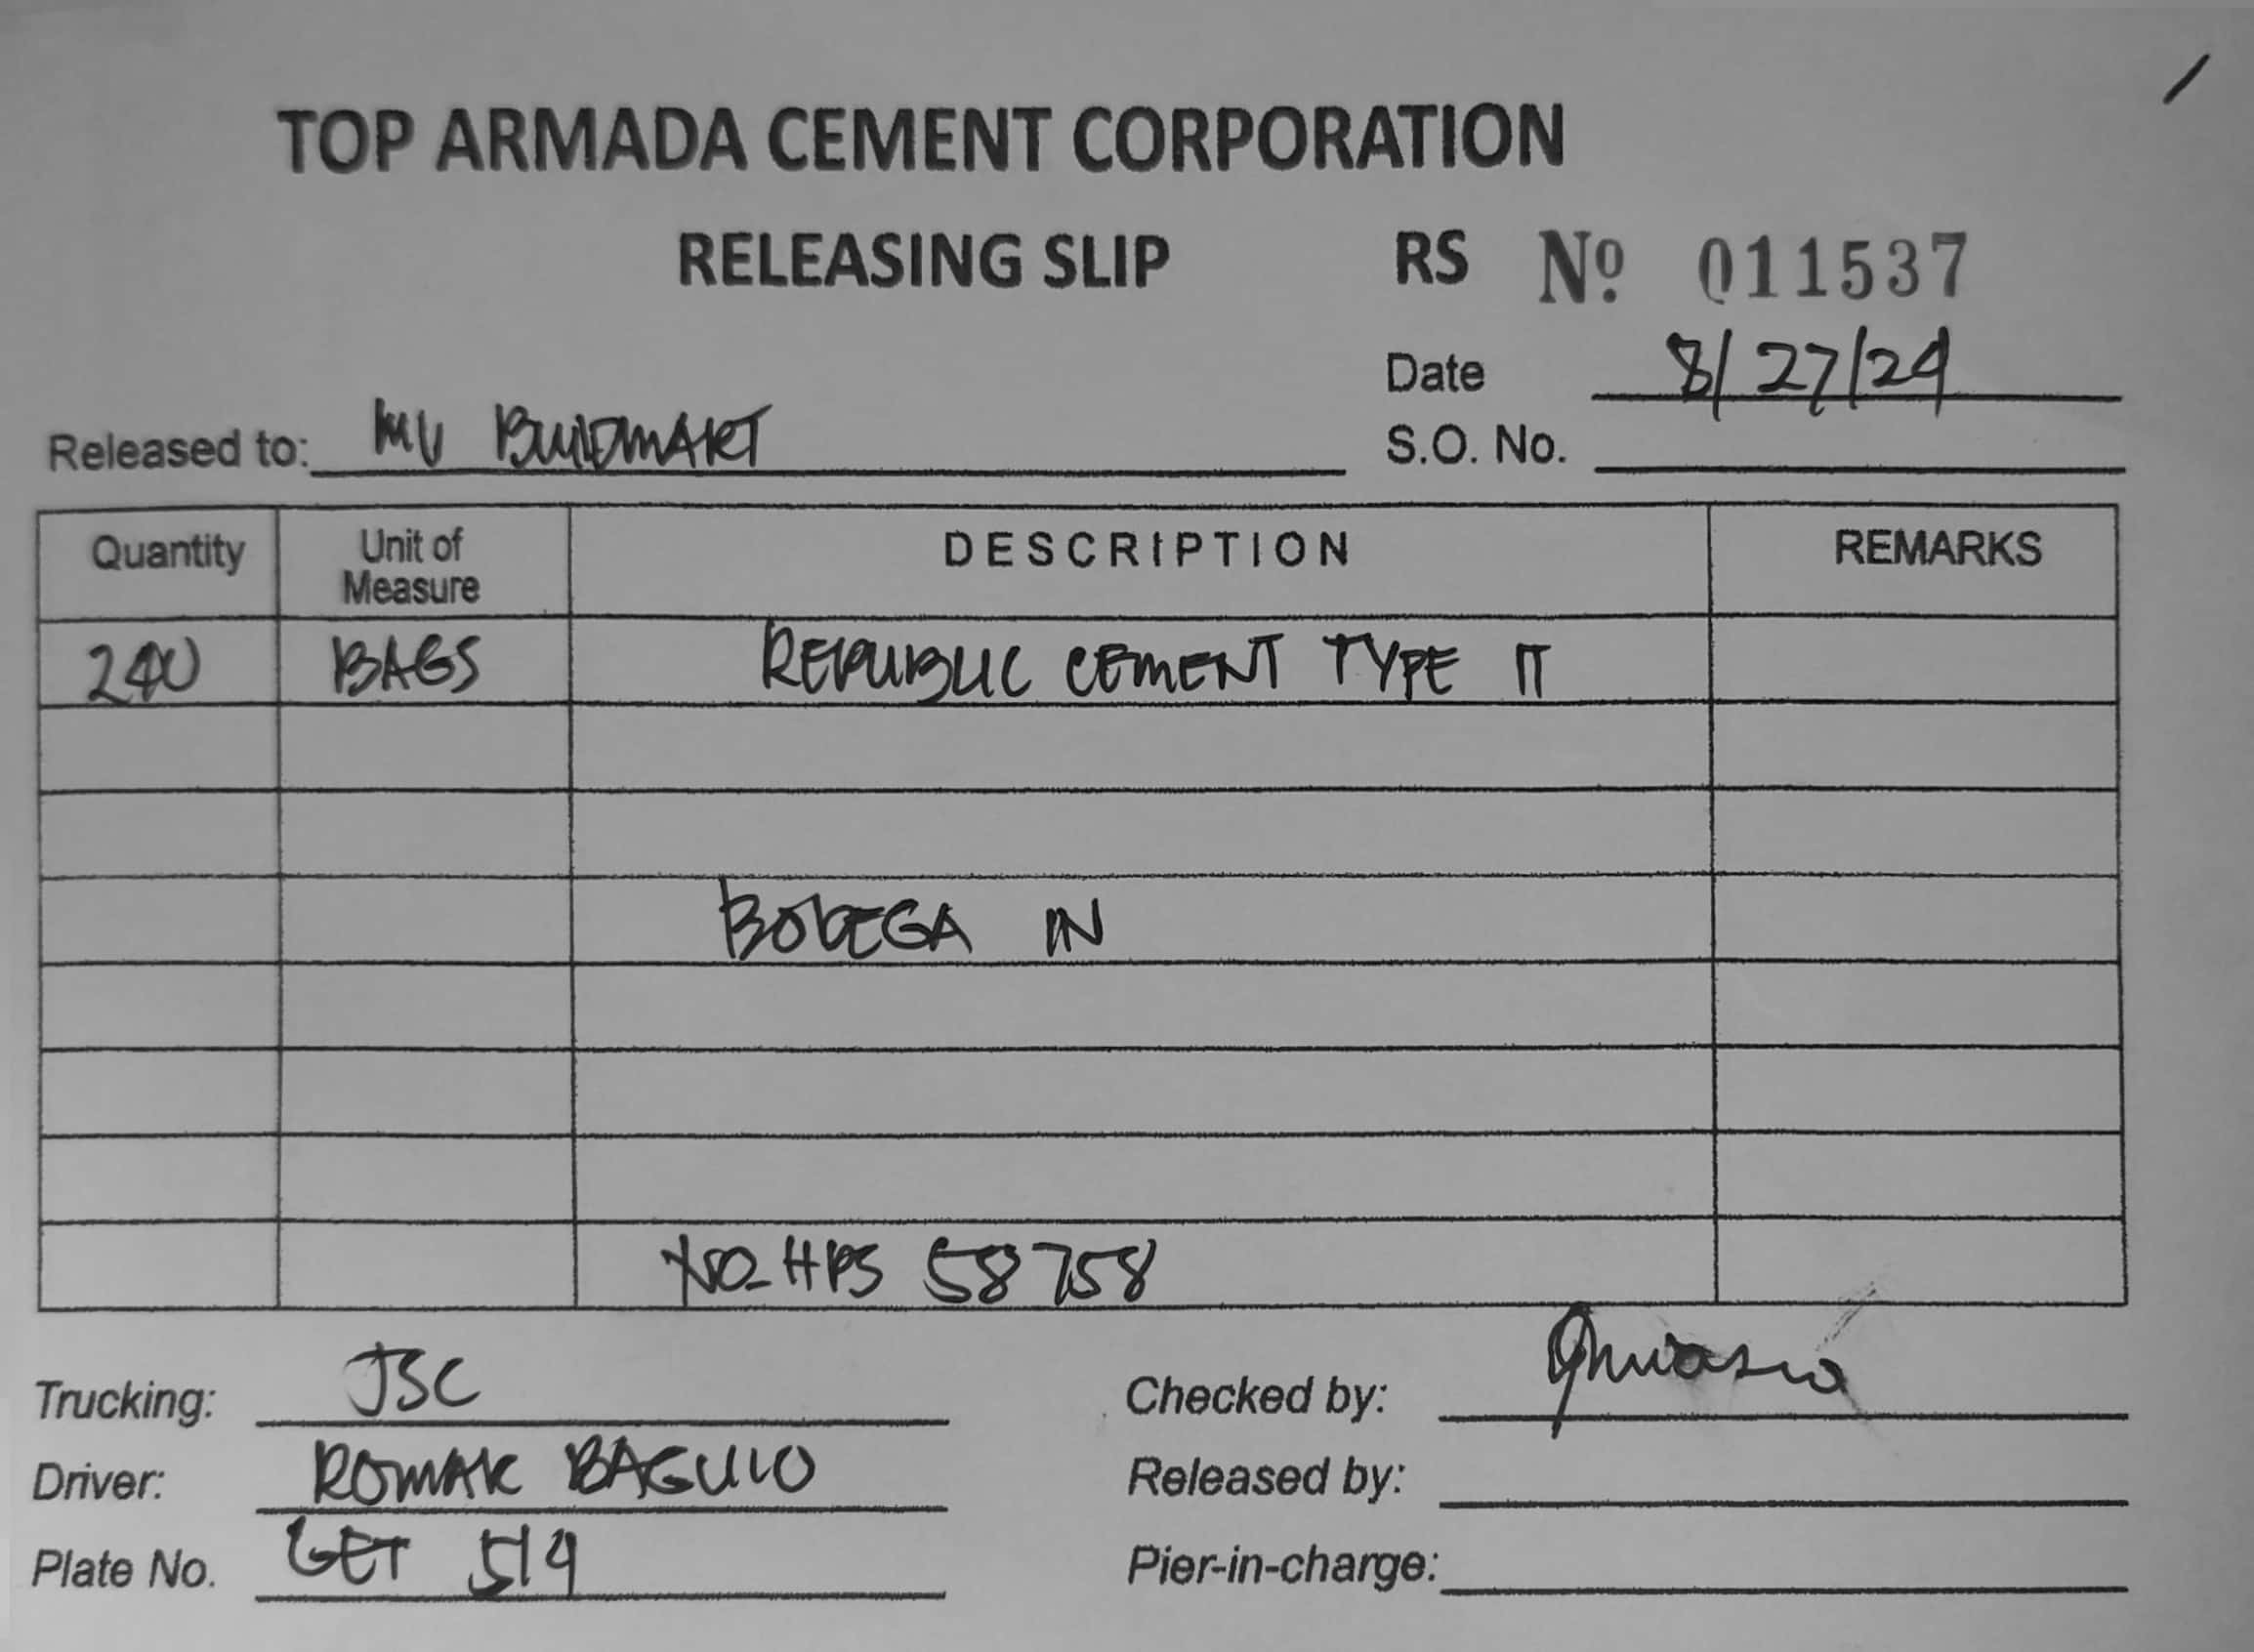 TOP ARMADA CEMENT CORPORATION
RELEASING SLIP RS Nº 011537
Date 8/27/24
Released to: MV BUILDMART S.O. No.
Quantity Unit of Measure DESCRIPTION REMARKS
240 BAGS REPUBLIC CEMENT TYPE II
BODEGA IN
58758
Trucking: JSC Checked by:
Driver: ROMAR BAGUIO Released by:
Plate No. GET 514 Pier-in-charge: